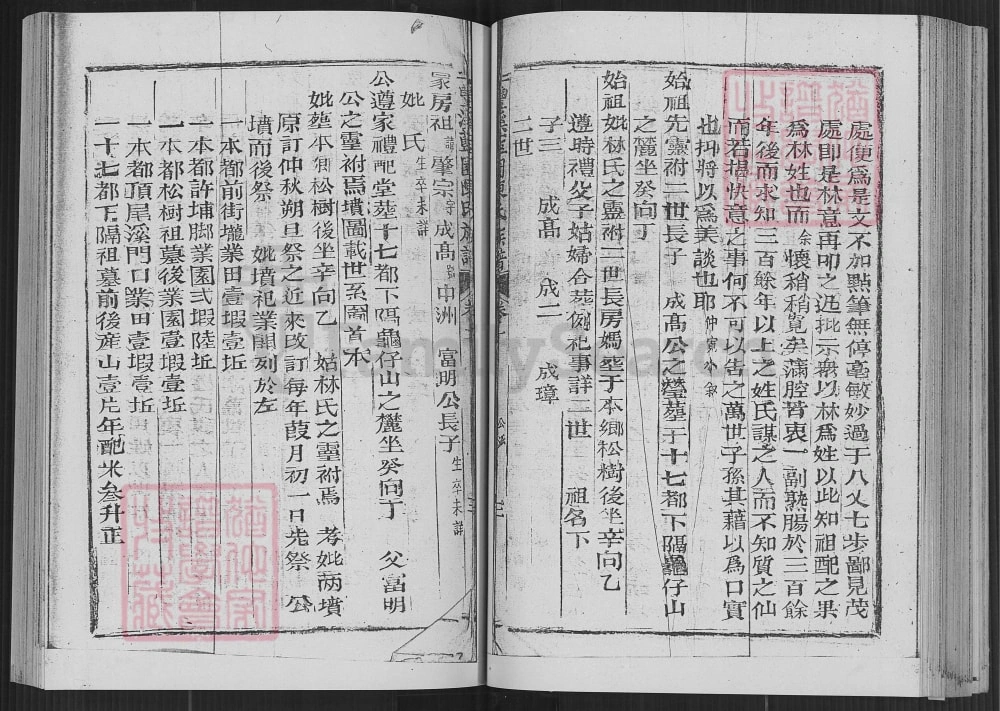 處便為是文不加點筆無停毫敏妙過于八乂七步鄙見茂
處即是林意再叩之迺批示衆以林為姓以此知祖配之果
為林姓也而余懷稍稍寬矣滿腔苦衷一副熟腸於三百餘
年後而求知三百餘年以上之姓氏謀之人而不知質之仙
而若揭快意之事何不可以告之萬世子孫其藉以為口實
也抑將以為美談也耶 仲寅小叙
始祖先靈祔二世長子 成髙公之瑩塟于十七都下隔龜仔山
之麓坐癸向丁
始祖妣林氏之靈祔二世長房媽塟于本鄉松樹後坐辛向乙
遵時禮父子姑婦合葬例祀事詳二世 祖名下
子三 成髙 成二 成璋
二世
冡房祖諱肇宗字成髙號申洲 富明公長子 生卒未詳
妣 氏 生卒未詳
公遵家禮配堂塟十七都下隔龜仔山之麓坐癸向丁 父富明
公之靈祔焉墳圖載世系圖首本
妣塟本鄉松樹後坐辛向乙 姑林氏之靈祔焉 考妣兩墳
原訂仲秋朔旦祭之近來改訂每年葭月初一日先祭 公
墳而後祭 妣墳祀業開列於左
一本都前街壠業田壹塅壹坵
一本都許埔脚業園弍塅陸坵
一本都松樹祖墓後業園壹塅壹坵
一本都頂尾溪門口業田壹塅壹坵
一十七都下隔祖墓前後産山壹片年配米叁升正